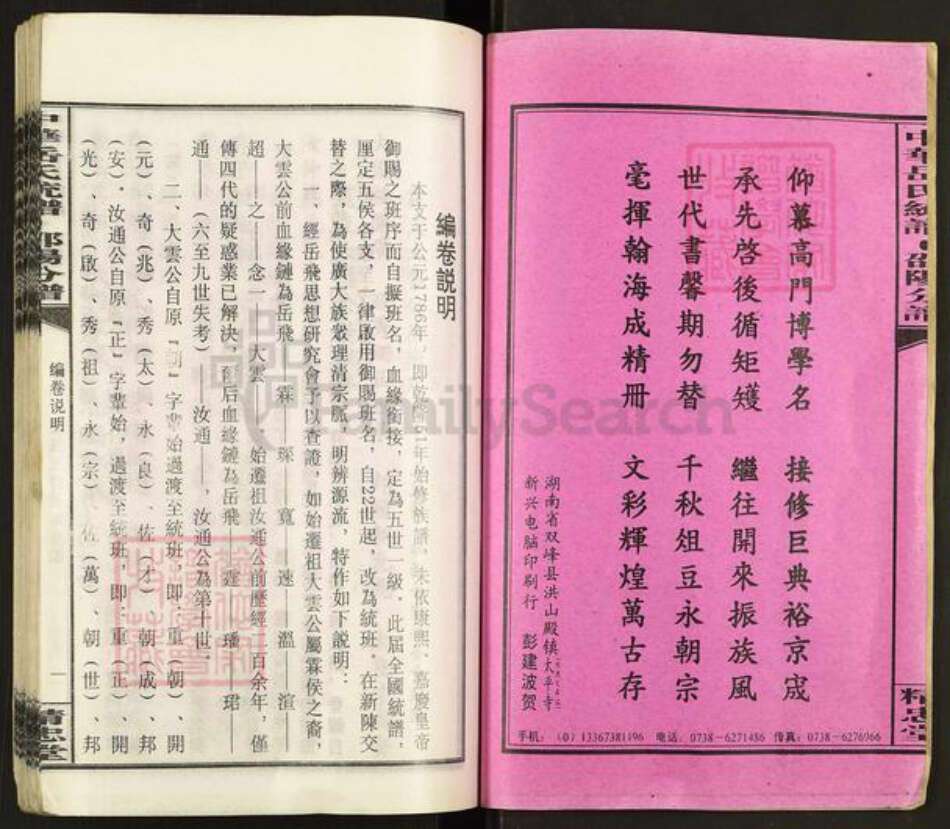 中華岳氏統譜●邵陽分譜
精忠堂
仰慕高門博學名　接修巨典裕京宬
承先啓後循矩矱　繼往開來振族風
世代書馨期勿替　千秋俎豆永朝宗
毫揮翰海成精冊　文彩輝煌萬古存
湖南省双峰县洪山殿镇太平寺
新兴电脑印刷行　彭建波贺
手机：（0）13367381196　电话：0738－6271486　传真：0738－6276966
編卷説明
本文于公元1786年，即乾隆51年始修族譜，未依康熙、嘉慶皇帝
御賜之班序而自擬班名，血緣銜接，定為五世一級，此屆全國統譜，
厘定五侯各支，一律啟用御賜班名，自22世起，改為統班。在新陳交
替之際，為使廣大族眾理清宗脈，明辨源流，特作如下説明：
一、經岳飛思想研究會予以查證，如始遷祖大雲公屬霖侯之裔，
大雲公前血緣鏈為岳飛——霖——琛——寬——速——溫——渲——
超——之——念一——大雲——，始遷祖汝通公前歷經二百余年，僅
傳四代的疑惑業已解決，爾后血緣鏈為岳飛——霆——璠——珺——
通——（六至九世失考）——汝通——，汝通公為第十世。
二、大雲公自原『朝』字輩始過渡至統班，即：重（朝）、開
（元）、奇（兆）、秀（太）、永（良）、佐（才）、朝（成）、邦
（安）。汝通公自原『正』字輩始，過渡至統班，即：重（正）、開
（光）、奇（啟）、秀（祖）、永（宗）、佐（萬）、朝（世）、邦
中華岳氏統譜●邵陽分譜
编卷说明
一
精忠堂
FamilySearch